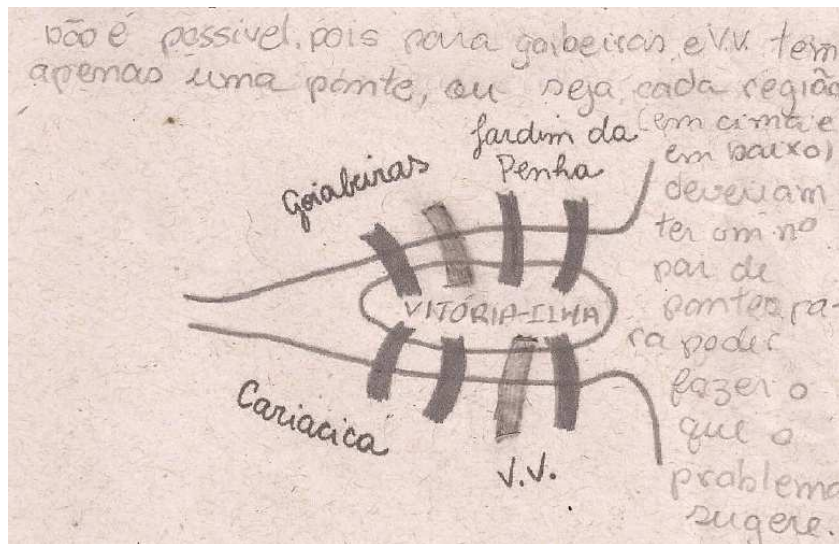 não é possivel, pois para goibeiras e V.V. tem
apenas uma ponte, ou seja, cada região
(em cima e
em baixo)
deveriam
ter um nº
par de
pontes pa-
ra poder
fazer o
que o
problema
sugere.
Jardim da
Penha
Goiabeiras
VITÓRIA-ILHA
Cariacica
V.V.